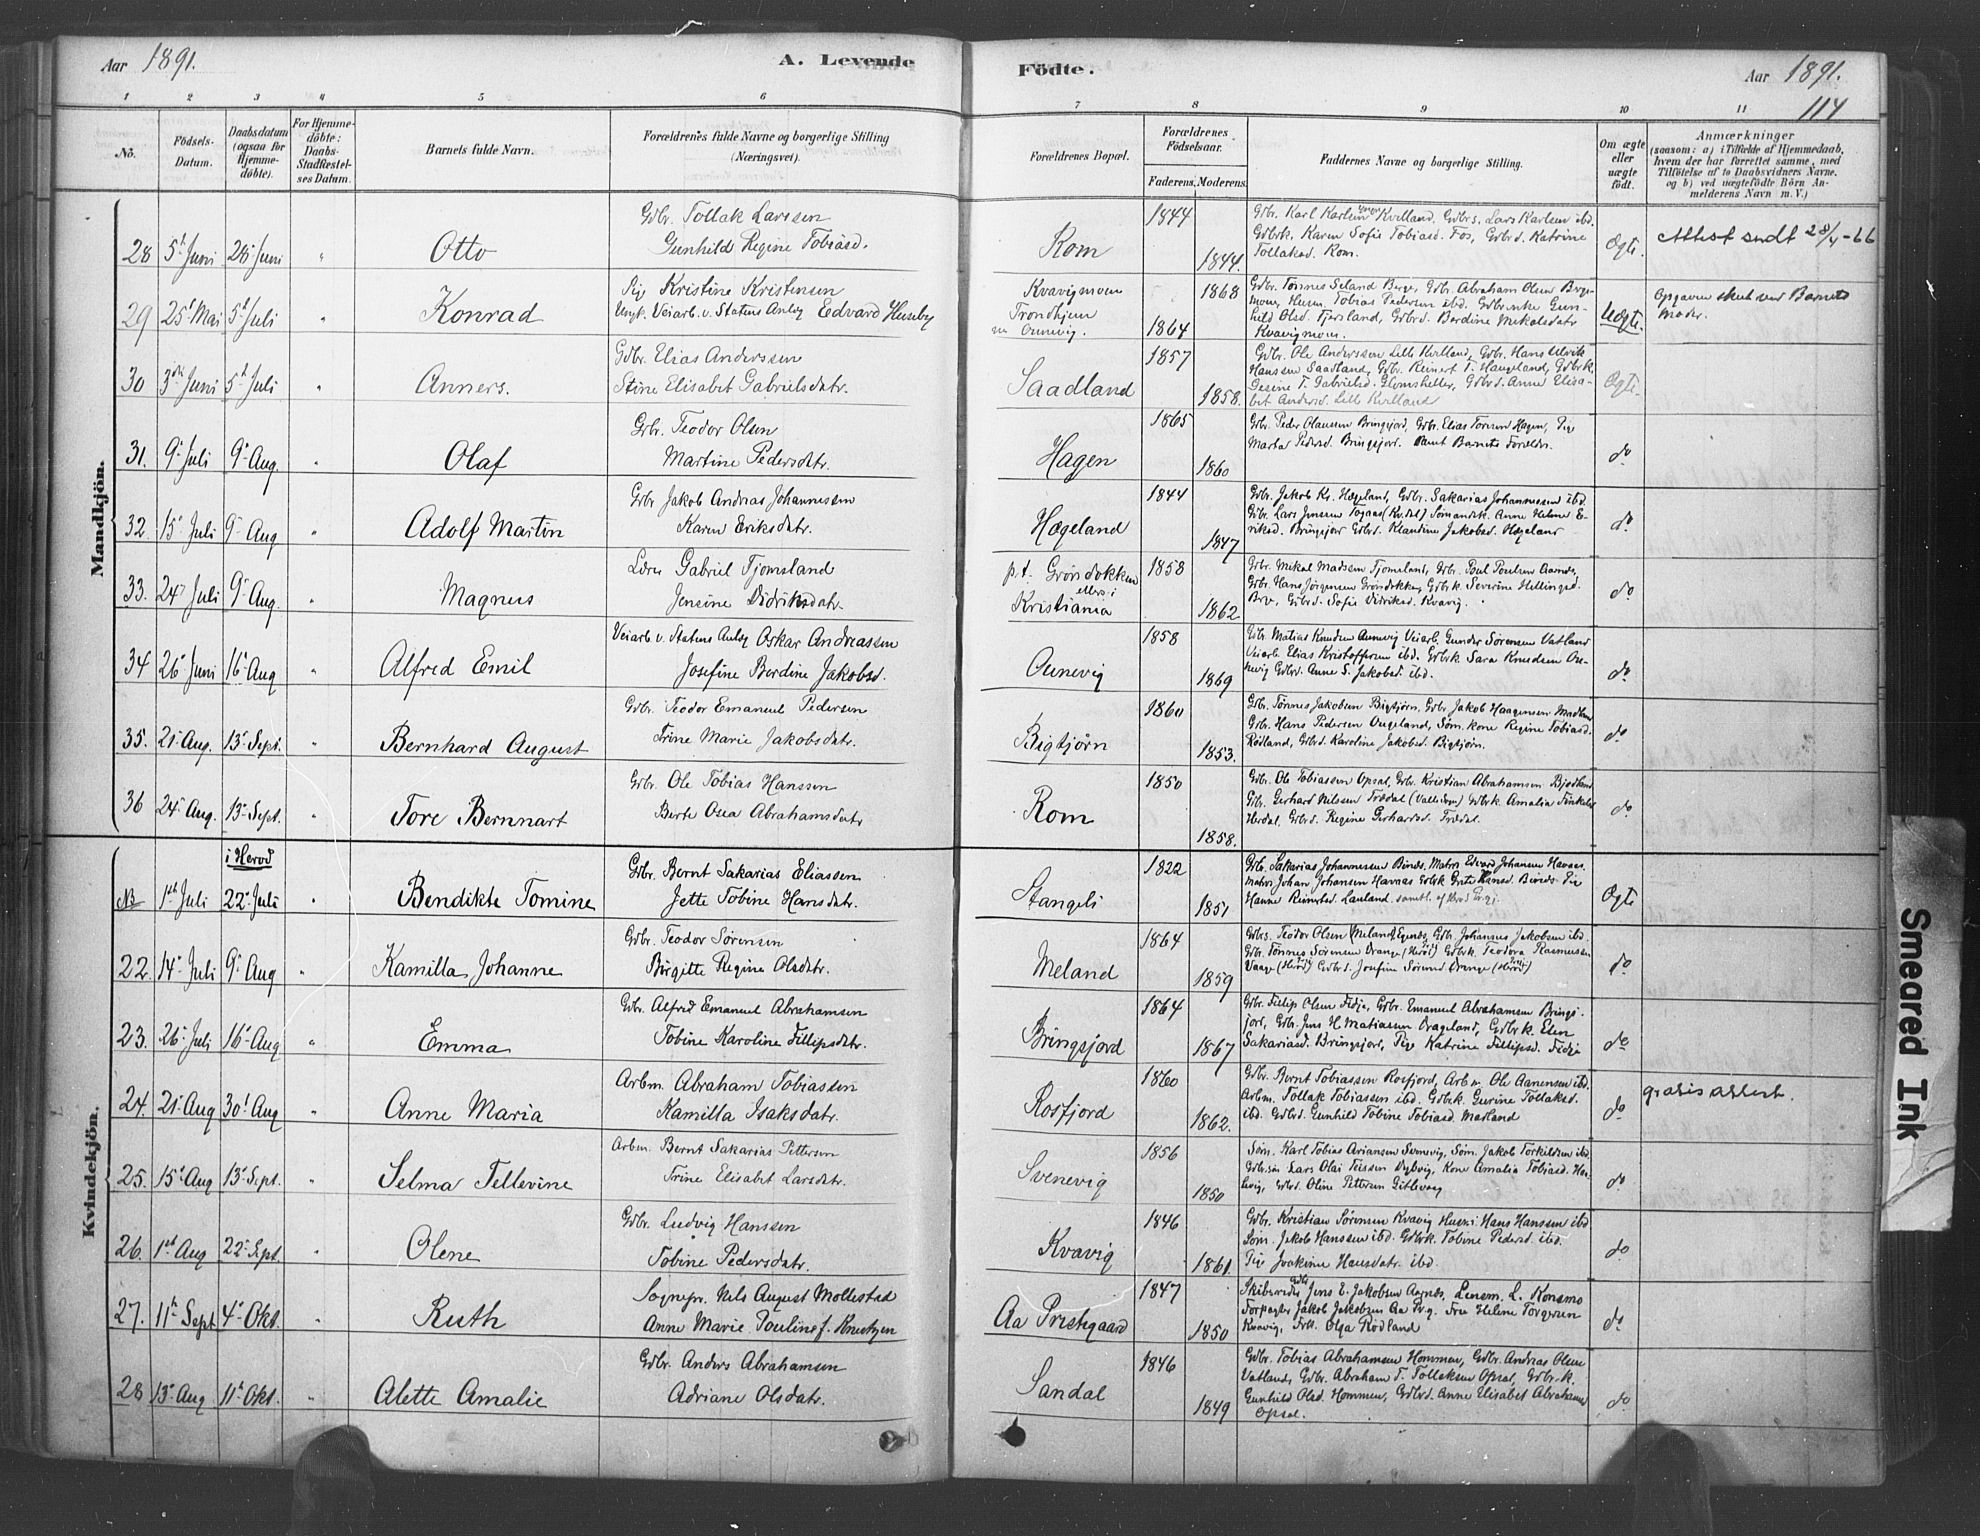 Aar 1891.
A. Levende
Födte.
Aar 1891.
114
1 2 3 4 5 6 7 8 9 10 11
No.
Födsels-
Datum.
Daabsdatum
(ogsaa for
Hjemme-
döbte).
For Hjemme-
döbte:
Daabs-
Stadfæstel-
ses Datum.
Barnets fulde Navn.
Forældrenes fulde Navne og borgerlige Stilling
(Næringsvei).
Forældrenes Bopæl.
Forældrenes
Födselsaar.
Faderens. Moderens.
Faddernes Navne og borgerlige Stilling.
Om ægte
eller
uægte
födt.
Anmærkninger
(saasom: a) i Tilfælde af Hjemmedaab,
hvem der har forrettet samme, med
Tilföielse af to Daabsvidners Navne,
og b) ved uægtefödte Börn An-
melderens Navn m. V.)
Mandkjön.
Gdbr. Tollak Larssen
Gunhild Regine Tobiasd.
28 5t Juni 28 Juni " Otto
Rom
1844
1844.
Gdbr. Karl Karlsen Kvilland. Gdbrs. Lars Karlsen ibd.
Gdbrk. Karen Sofie Tobiasd. Fos, Gdbrd. Katrine
Tollaksd. Rom.
Ægte.
Attest sendt 28/4-66
Pig Kristine Kristensen
Ungk. Veiarb. v. Statens Anlæg Edvard Huseby
29 25t Mai 5t Juli " Konrad
Kvavigmoen
Trondhjem
nu Ounevig.
1868
1864
Gdbr. Tönnes Seland Berge, Gdbr. Abraham Olsen Berge-
moen, Husm. Tobias Pedersen ibd. Gdbr.enke Gun-
hild Olsd. Fjersland, Gdbrd. Berdine Mikalsdatr
Kvavigmoen.
Uægte.
Opgaven skeet ved Barnets
Moder.
Gdbr. Elias Anderssen
Stine Elisabet Gabrielsdatr.
30 3die Juni 5t Juli " Anners.
Saadland
1857
1858.
Gdbr. Ole Anderssen Lille Kvilland, Gdbr. Hans Ulrik
Hanssen Saadland, Gdbr. Reinert T. Haugeland, Gdbrk.
Gesine T. Gabrielsd. Glomsheller, Gdbrd. Anne Elisa-
bet Andersd. Lille Kvilland
Ægte.
Gdbr. Teodor Olsen
Martine Pedersdatr.
31. 9t Juli 9t Aug. " Olaf
Hagen
1865
1860
Gdbr. Peder Olaussen Bringsjord, Gdbr. Elias Torisen Hagen, Pige
Marta Pedersd. Bringsjord. Samt Barnets Forældre.
do
Gdbr Jakob Andreas Johannessen
Karen Eriksdatr.
32 15t Juli 9t Aug " Adolf Martin
Hægeland
1844
1847
Gdbr. Jakob Kr. Hægeland, Gdbr. Sakarias Johannessen ibd.
Gdbr. Lars Jensen Topaas (Kv.dal) Sömandsk. Anne Helene E-
riksd. Bringsjor Gdbrd. Klaudine Jakobsd. Hægeland
do
Lærer Gabriel Tjomsland
Jensine Didriksdatr.
33. 24t Juli 9t Aug. " Magnus
p.t. Gröndokken
ellers i
Kristiania
1858
1862
Gdbr. Mikal Madssen Tjomsland, Gdbr. Poul Poulsen Aamdes,
Gdbr. Hans Jörgensen Gröndokken, Gdbrk. Severine Hellingsd.
Berge, Gdbrd. Sofie Didriksd. Kvavig.
do
Veiarb. v. Statens Anlæg Oskar Andreassen
Josefine Berdine Jakobsd.
34 26t Juni 16t Aug " Alfred Emil
Ounevig
1858
1869
Gdbr. Matias Knudsen Ounevig Veiarb. Gunder Sörensen Vatland
Veiarb. Elias Kristoffersen ibd. Gdbrk. Sara Knudsen Ou-
nevig Gdbrd. Anne S. Jakobsd. ibd.
do
Gdbr. Teodor Emanuel Pedersen
Trine Marie Jakobsdatr.
35. 21t Aug. 13t Sept. " Bernhard August
Bigtjörn
1860
1853.
Gdbr. Tönnes Jakobsen Bigtjörn. Gdbr Jakob Haagensen Madland
Gdbr. Hans Pedersen Ougeland, Söm. kone Regine Tobiasd.
Rödland, Gdbrd. Karoline Jakobsd. Bigtjörn.
do
Gdbr. Ole Tobias Hanssen
Berte Osea Abrahamsdatr
36 24t Aug. 13t Sept. " Tore Bernnart
Rom
1850
1858.
Gdbr. Ole Tobiassen Opsal, Gdbr. Kristian Abrahamsen Bjodland
Gdbr. Gerhard Nilssen Trædal (Valle Sogn) Gdbrk. Amalia
Herdal, Gdbrd. Regine Gerhardsd. Trædal.
do
Kvindekjön.
i Herod
Gdbr. Bernt Sakarias Eliassen
Jette Tobine Hansdatr.
NB 1st Juli 22t Juli " Bendikte Tomine
Stangeli
1822
1851
Gdbr. Sakarias Johannessen Bindes, Matros Edvard Johansen Havaas
Matros Johan Johansen Havaas Gdbrk. Grete Hansd. Bindes Pig
Hanne Reinertsd. Lauland
Ægte
Gdbr. Teodor Sörensen
Birgitte Regine Olsdatr.
22. 14t Juli 9t Aug " Kamilla Johanne
Meland
1864
1859
Gdbrs. Teodor Olsen Meland, Gdbr. Johannes Jakobsen ibd.
Gdbr. Tönnes Sörensen Drange (Herod) Gdbrk. Teodora Rasmussen
Vaage (Herod) Gdbrd. Josefine Sörensd Drange (Herod)
do
Gdbr. Alfred Emanuel Abrahamsen
Tobine Karoline Fillipsdatr.
23. 26t Juli 16t Aug " Emma
Bringsjord
1864
1867
Gdbr. Fillip Olsen Fidje, Gdbr. Emanuel Abrahamsen Brings-
jord, Gdbr. Jens H. Matiassen Drageland, Gdbrk. Elen
Sakariasd. Bringsjor, Pige Katrine Fillipsd. Fidje
do
Arbm. Abraham Tobiassen
Kamilla Isaksdatr.
24. 21t Aug 30t Aug " Anne Maria
Rosfjord
1860
1862.
Gdbr. Bernt Tobiassen Rosfjord, Arbm Ole Aanensen ibd.
Arbm. Tollak Tobiassen ibd. Gdbrk. Gurine Tollaksd.
ibd. Gdbrd. Gunhild Tobine Tobiasd. Madland
do
gratis attest.
Arbm. Bernt Sakarias Pettersen
Trine Elisabet Larsdatr.
25. 15t Aug 13t Sept. " Selma Tellevine
Svenevig
1856
1850
Söm. Karl Tobias Ariansen Svenevig, Söm. Jakob Torkildsen ibd
Gdbr.sön Lars Olai Teissen Dybvig, Kone Amalia Tobiasd.
do
Gdbr. Ludvig Hanssen
Tobine Pedersdatr.
26. 1st Aug 22t Sept. " Olene
Kvavig
1846
1861.
Gdbr. Kristian Sörensen Kvavig Husm. Hans Hanssen ibd
Söm. Jakob Hanssen ibd. Gdbrk. Tobine Pedersd. ibd.
Pige Joakime Hansdatr. ibd.
do
Sognepr. Nils August Mollestad
Anne Marie Pouline f. Knutzen
27. 11te Sept 4t Okt. " Ruth
Aa Prestgaard
1847
1850
Skibsreder Jens E. Jakobsen Aarnes, Lensm. L. Konsmo
Forpagter Jakob Jakobsen Aa Pr.g. Frue Helene Torgersen
Kvavig, Frk. Olga Rödland
do
Gdbr. Anders Abrahamsen
Adriane Olsdatr.
28 13t Aug 11t Okt. " Alette Amalie
Sandal
1846
1849
Gdbr. Tobias Abrahamsen Hommen, Gdbr. Andreas Olsen
Vatland, Gdbr. Abraham T. Tollaksen Opsal, Gdbr.k.
Gunhild Olsd. Hommen, Gdbrd. Anne Elisabet Abrahams
Opsal.
do
Smeared Ink